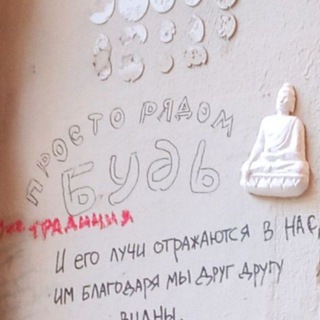 ПРОСТО РЯДОМ
БУДЬ
ТРАДИЦИЯ
И ЕГО ЛУЧИ ОТРАЖАЮТСЯ В НАС,
ИМ БЛАГОДАРЯ МЫ ДРУГ ДРУГУ
ВИДНЫ.